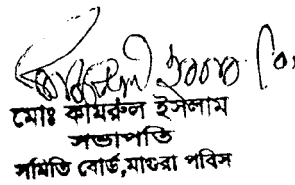 মোঃ কামরুল ইসলাম
সভাপতি
সমিতি বোর্ড,মাগুরা পবিস